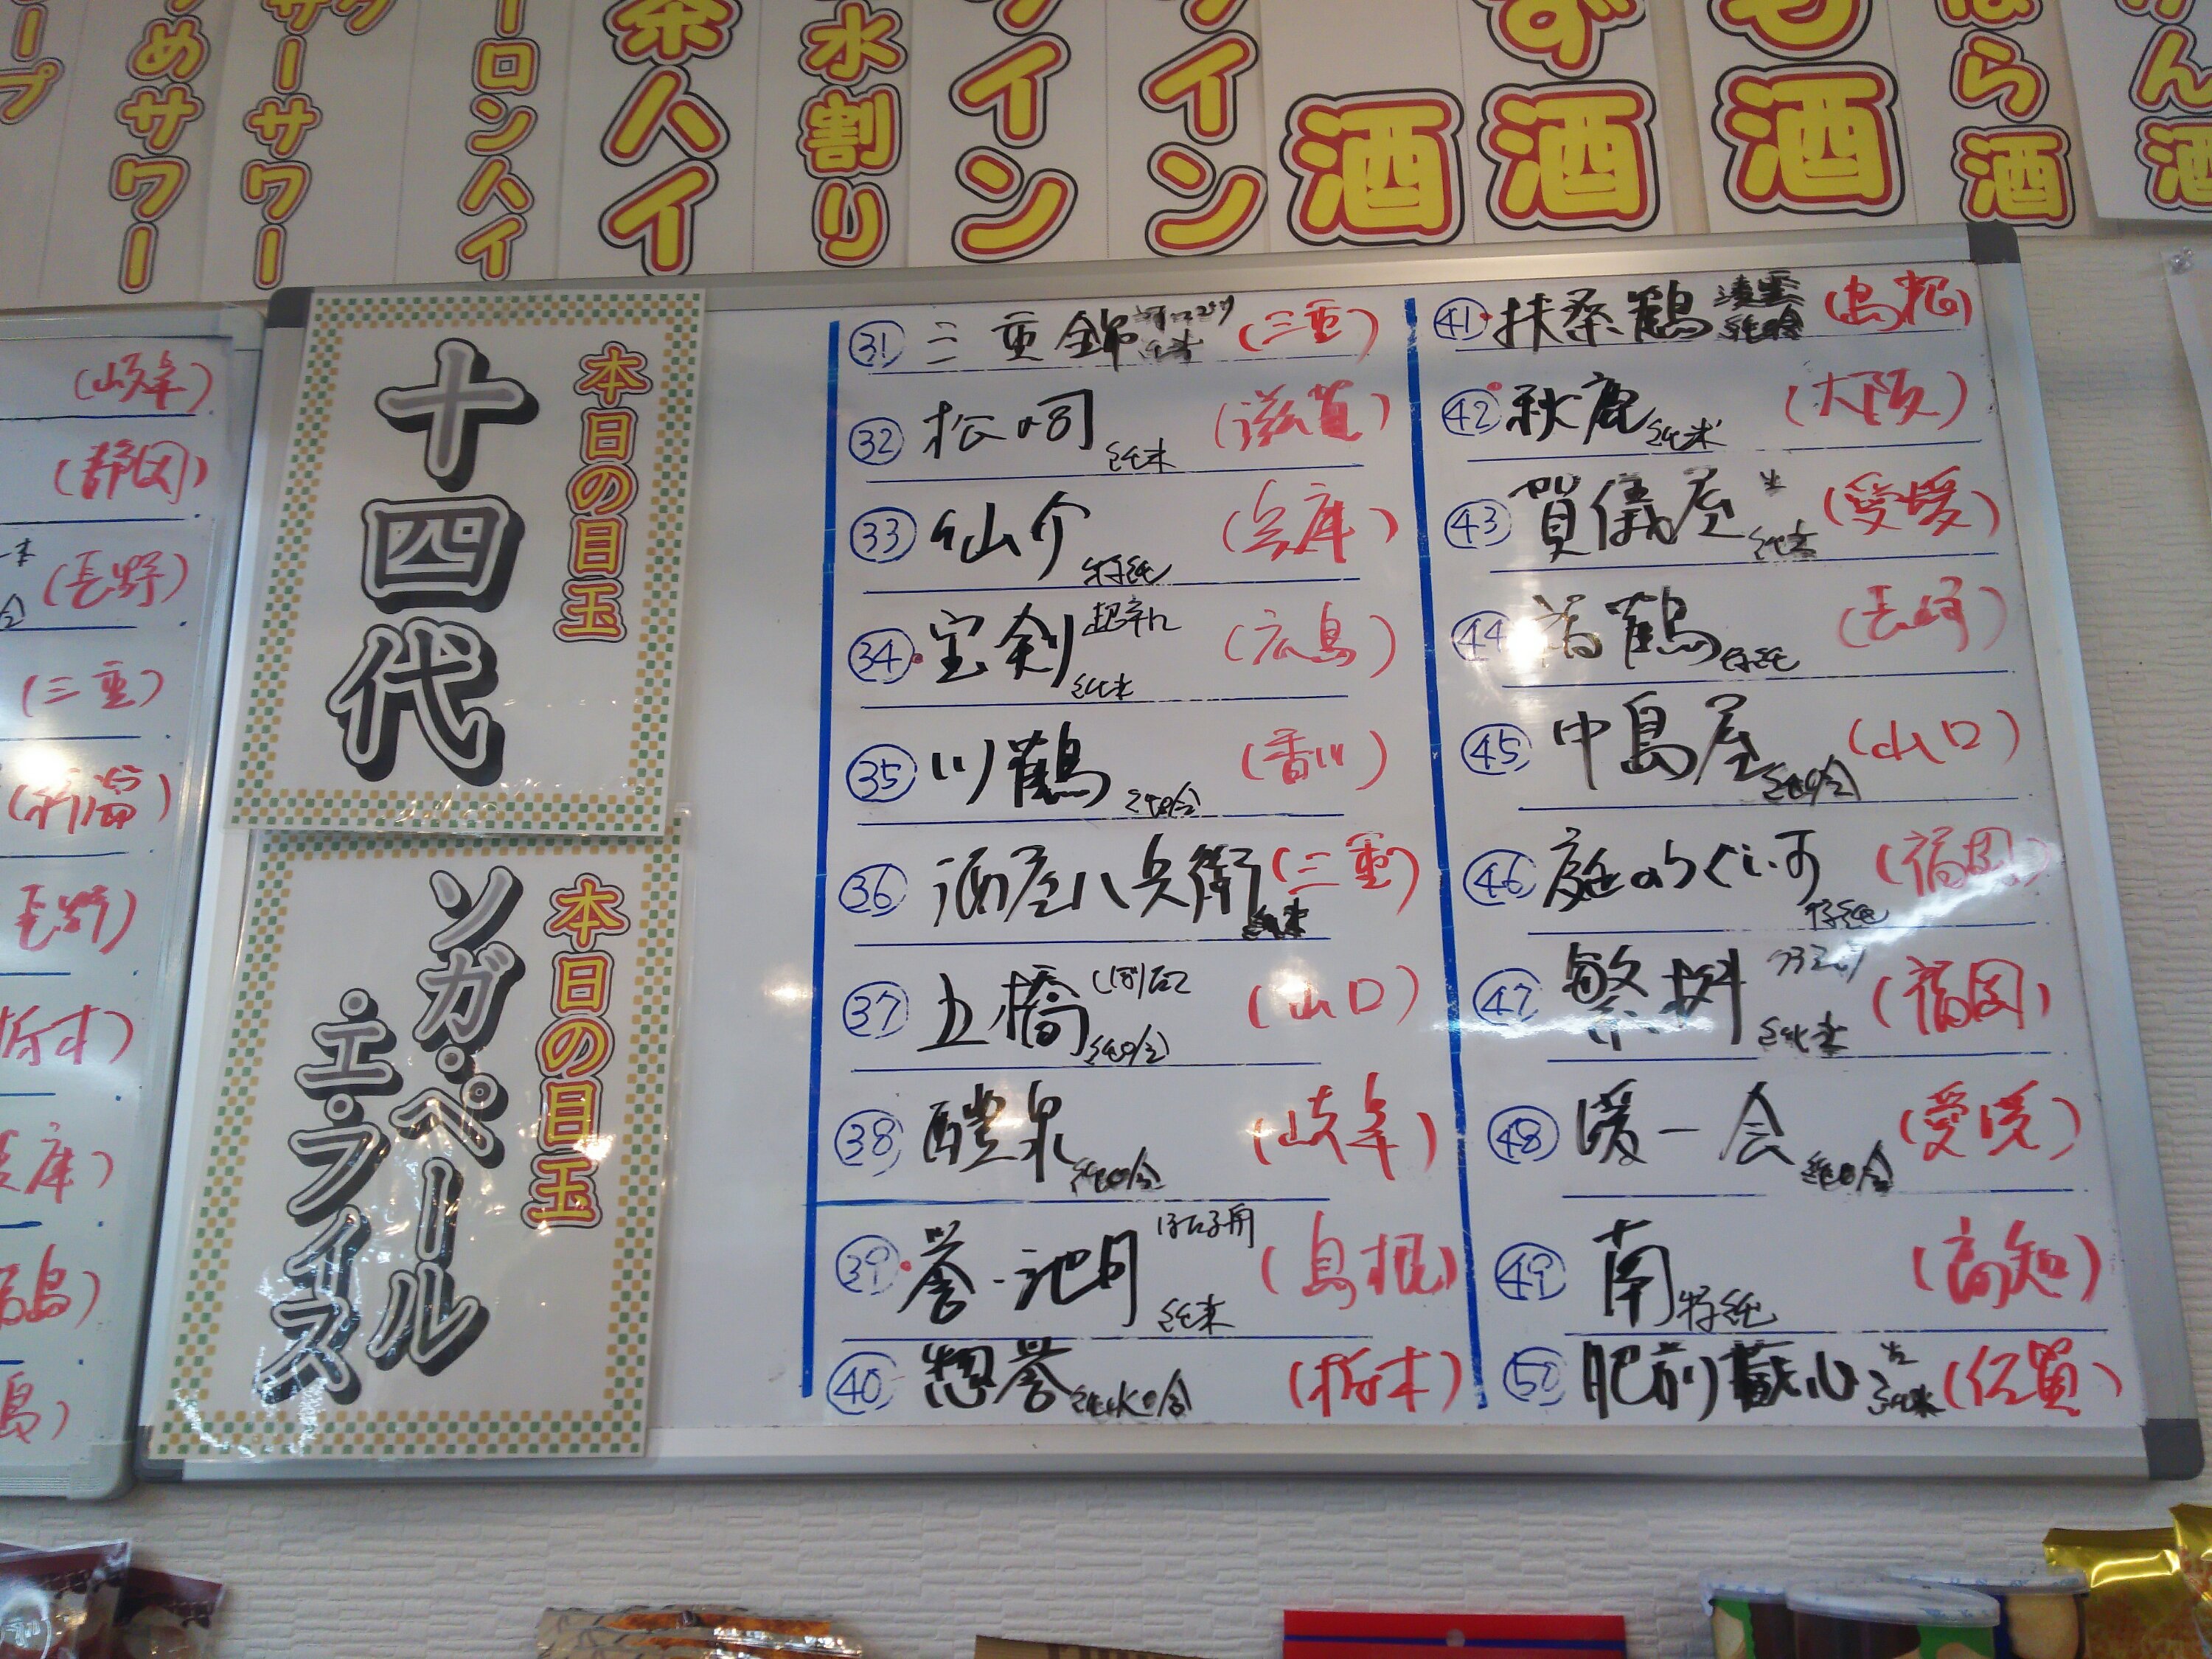 めサワー
サーサワー
ーロンハイ
茶ハイ
水割り
イン
イン
酒
ず酒
も酒
ばら酒
けん酒
(岐阜)
(静岡)
(長野)
(三重)
(新潟)
長野)
栃木)
兵庫)
島)
本日の目玉
十四代
本日の目玉
ソガ・ペール
エ・フィス
㉛ 三重錦 純米 (三重)
㉜ 松の司 純米 (滋賀)
㉝ 仙介 特純 (兵庫)
㉞ 宝剣 超辛口 純米 (広島)
㉟ 川鶴 純吟 (香川)
㊱ 酒屋八兵衛 純米 (三重)
㊲ 五橋 純吟 (山口)
㊳ 醴泉 純吟 (岐阜)
㊴ 誉池月 純米 (島根)
㊵ 惣誉 純米吟 (栃木)
㊶ 扶桑鶴 純吟 (島根)
㊷ 秋鹿 純米 (大阪)
㊸ 賀儀屋 純米 (愛媛)
㊹ 鶴 特純 (長崎)
㊺ 中島屋 純吟 (山口)
㊻ 庭のうぐいす 特純 (福岡)
㊼ 繁桝 純米 (福岡)
㊽ 媛一会 純吟 (愛媛)
㊾ 南 特純 (高知)
㊿ 肥前蔵心 純米 (佐賀)